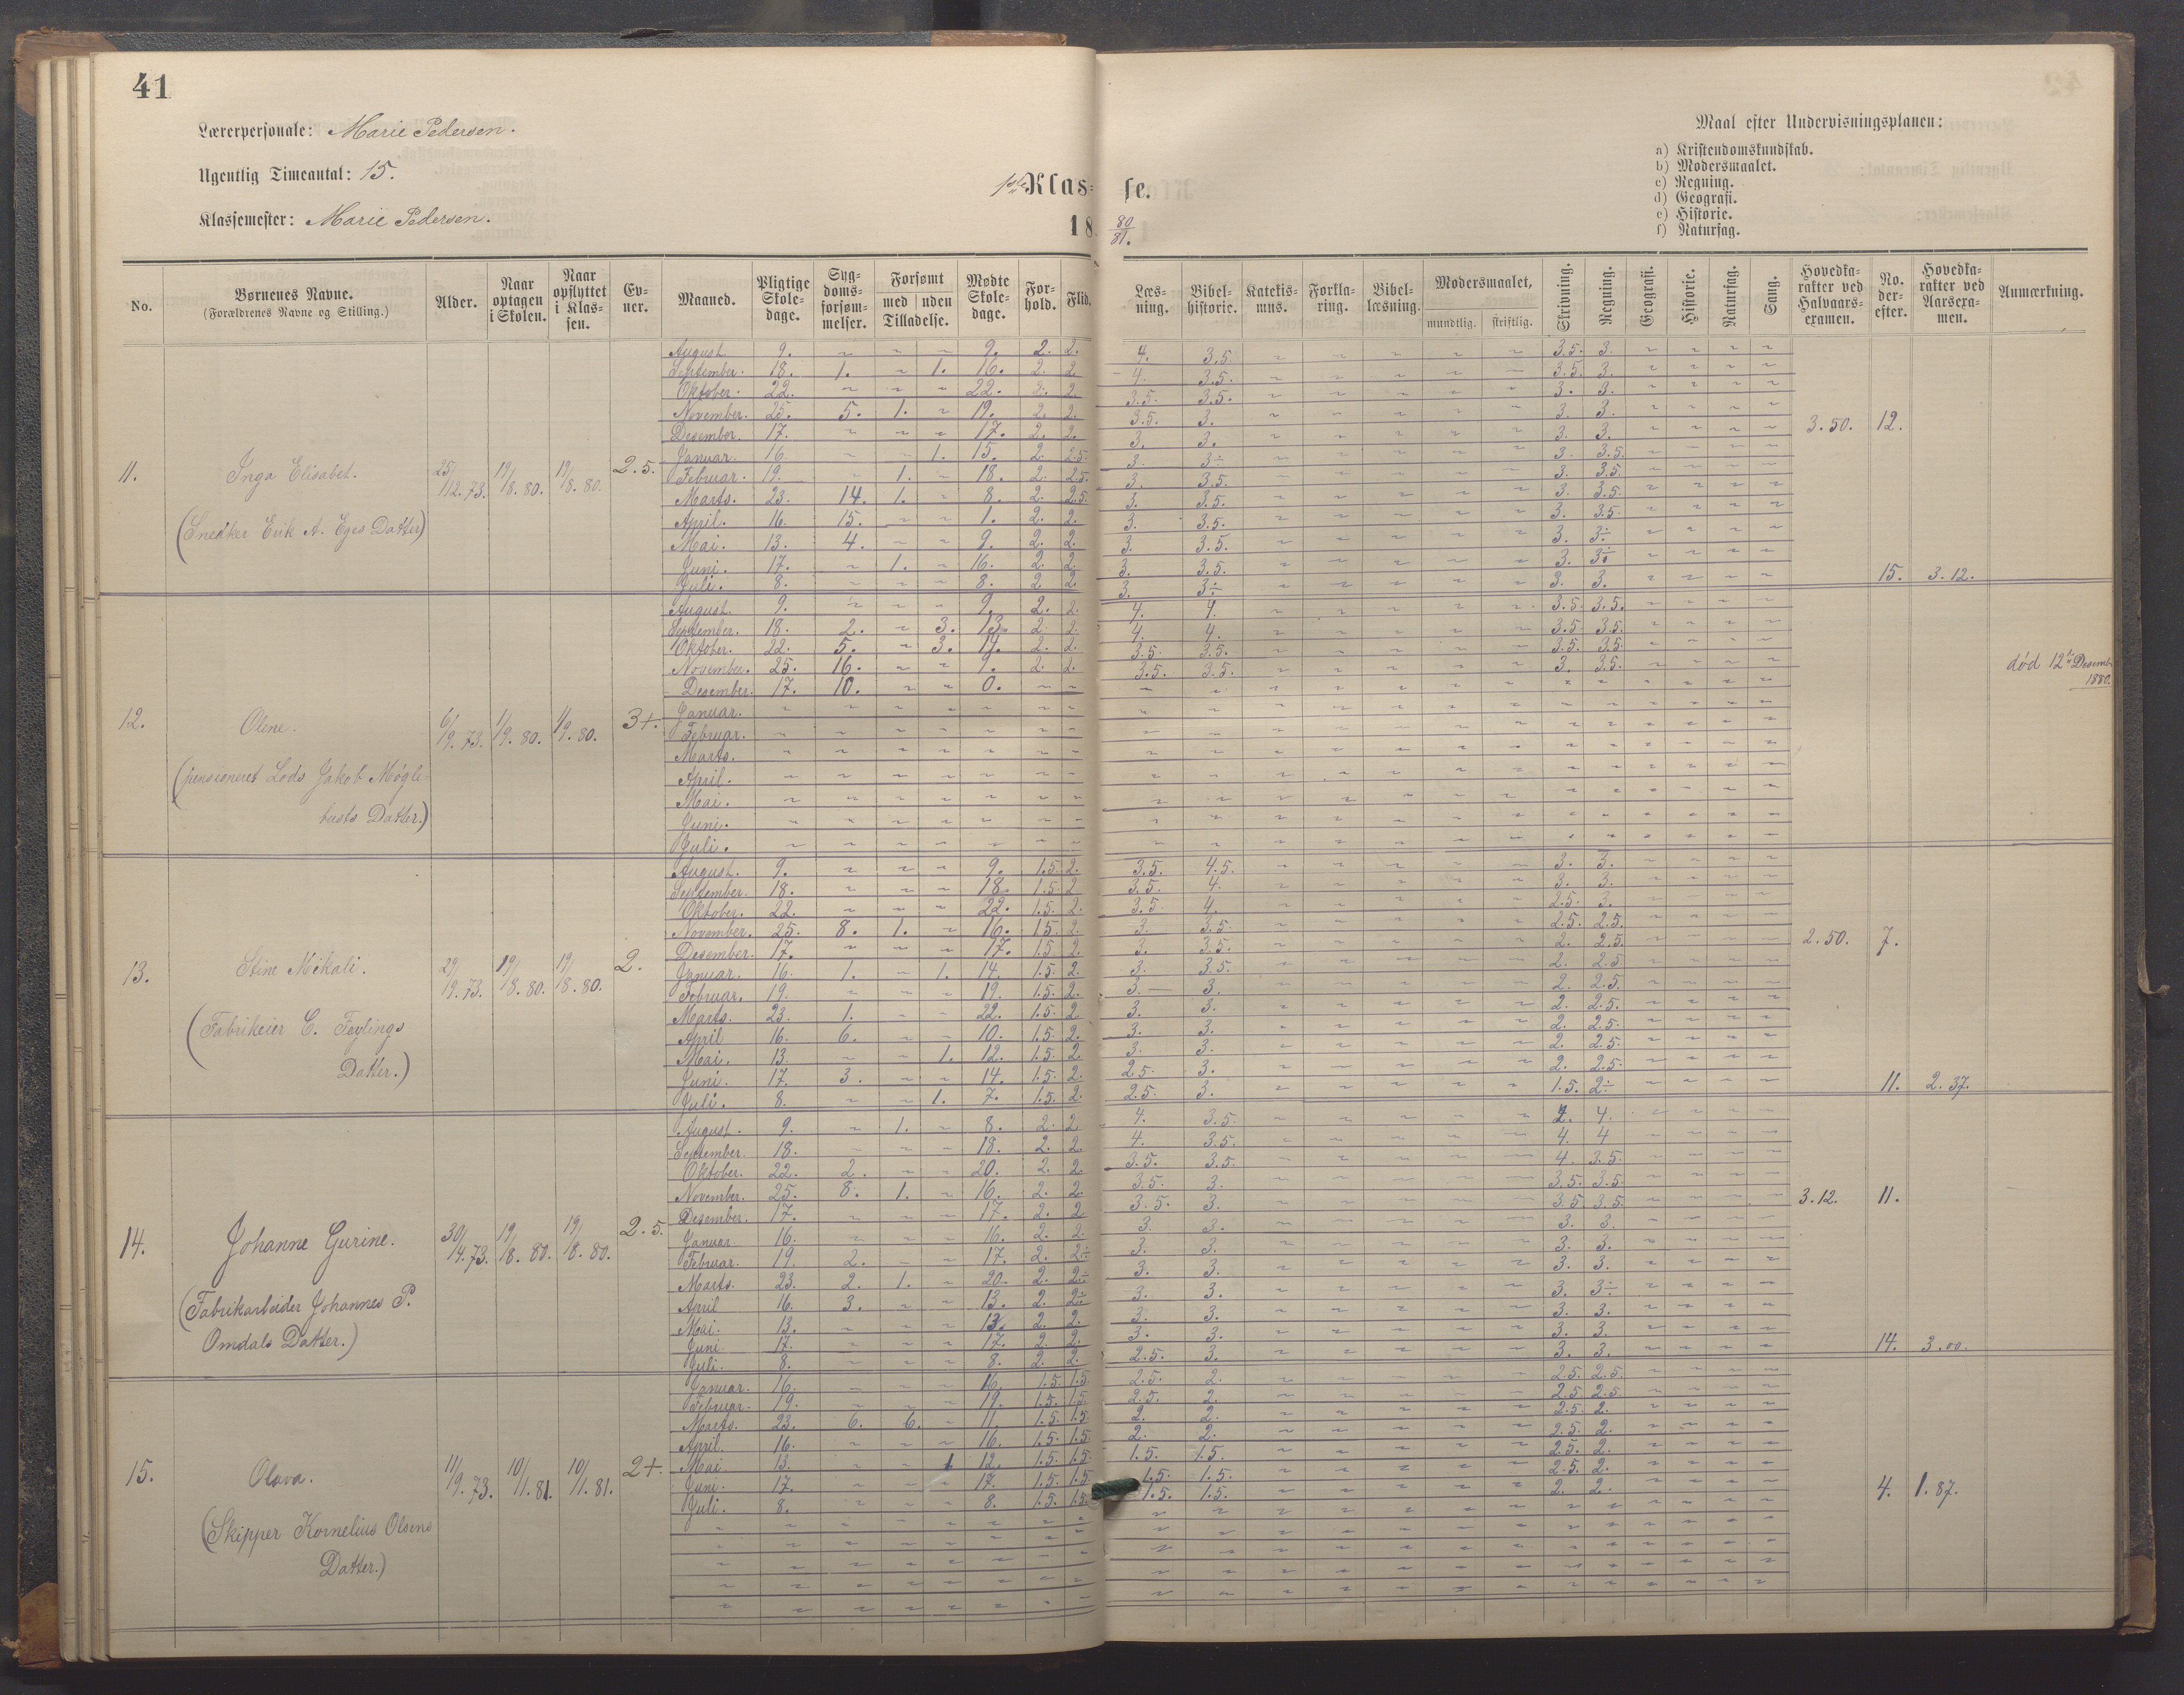 41
Lærerpersonale: Marie Pedersen.
Ugentlig Timeantal: 15.
Klassemester: Marie Pedersen.
1ste Klasse.
18 80/81.
Maal efter Undervisningsplanen:
a) Kristendomskundskab.
b) Modersmaalet.
c) Regning.
d) Geografi.
e) Historie.
f) Naturfag.
No. | Børnenes Navne. (Forældrenes Navne og Stilling.) | Alder. | Naar optagen i Skolen. | Naar opflyttet i Klassen. | Evner. | Maaned. | Pligtige Skoledage. | Sygdomsforsømmelser. | Forsømt med Tilladelse. | uden Tilladelse. | Mødte Skoledage. | Forhold. | Flid. | Læsning. | Bibelhistorie. | Katekismus. | Forklaring. | Bibellæsning. | Modersmaalet, mundtlig. | skriftlig. | Skrivning. | Regning. | Geografi. | Historie. | Naturfag. | Sang. | Hovedkarakter ved Halvaarsexamen. | No. derefter. | Hovedkarakter ved Aarsexamen. | Anmærkning.
11. Inga Elisabet. 25/12.73. 19/8.80. 19/8.80. 2.5.
(Snedker Erik A. Eges Datter)
August 9. ~ ~ ~ 9. 2. 2. 4. 3.5. ~ ~ ~ ~ ~ 3.5. 3. ~ ~ ~ ~
September. 18. 1. ~ 1. 16. 2. 2. 4. 3.5. ~ ~ ~ ~ ~ 3.5. 3. ~ ~ ~ ~
Oktober. 22. ~ ~ ~ 22. 2. 2. 3.5. 3.5. ~ ~ ~ ~ ~ 3. 3. ~ ~ ~ ~
November. 25. 5. 1. ~ 19. 2. 2. 3.5. 3. ~ ~ ~ ~ ~ 3. 3. ~ ~ ~ ~
Desember. 17. ~ ~ ~ 17. 2. 2. 3. 3. ~ ~ ~ ~ ~ 3. 3. ~ ~ ~ ~ 3.50. 12.
Januar. 16. ~ ~ 1. 15. 2. 2.5. 3. 3÷ ~ ~ ~ ~ ~ 3. 3.5. ~ ~ ~ ~
Februar. 19. ~ 1. ~ 18. 2. 2.5. 3. 3.5. ~ ~ ~ ~ ~ 3. 3.5. ~ ~ ~ ~
Marts. 23. 14. 1. ~ 8. 2. 2.5. 3. 3.5. ~ ~ ~ ~ ~ 3. 3.5. ~ ~ ~ ~
April. 16. 15. ~ ~ 1. 2. 2. 3. 3.5. ~ ~ ~ ~ ~ 3. 3.5. ~ ~ ~ ~
Mai. 13. 4. ~ ~ 9. 2. 2. 3. 3.5. ~ ~ ~ ~ ~ 3. 3÷ ~ ~ ~ ~
Juni. 17. ~ 1. ~ 16. 2. 2. 3. 3.5. ~ ~ ~ ~ ~ 3. 3÷ ~ ~ ~ ~
Juli. 8. ~ ~ ~ 8. 2. 2. 3. 3÷ ~ ~ ~ ~ ~ 3. 3. ~ ~ ~ ~ 15. 3.12.
12. Olene. 6/9.73. 1/9.80. 1/9.80. 3+.
(pensioneret Lods Jakob Møgle-
busts Datter.)
August. 9. ~ ~ ~ 9. 2. 2. 4. 4. ~ ~ ~ ~ ~ 3.5. 3.5. ~ ~ ~ ~
September. 18. 2. ~ 3. 13. 2. 2. 4. 4. ~ ~ ~ ~ ~ 3.5. 3.5. ~ ~ ~ ~
Oktober. 22. 5. ~ 3. 14. 2. 2. 3.5. 3.5. ~ ~ ~ ~ ~ 3.5. 3.5. ~ ~ ~ ~
November. 25. 16. ~ ~ 9. 2. 2. 3.5. 3.5. ~ ~ ~ ~ ~ 3. 3.5. ~ ~ ~ ~ død 12te Desemb. 1880.
Desember. 17. 10. ~ ~ 0. ~ ~
Januar. ~ ~ ~ ~ ~ ~ ~
Februar. ~ ~ ~ ~ ~ ~ ~
Marts. ~ ~ ~ ~ ~ ~ ~
April. ~ ~ ~ ~ ~ ~ ~
Mai. ~ ~ ~ ~ ~ ~ ~
Juni. ~ ~ ~ ~ ~ ~ ~
Juli. ~ ~ ~ ~ ~ ~ ~
13. Stine Mikali. 29/9.73. 19/8.80. 19/8.80. 2.
(Fabrikeier C. Føylings
Datter.)
August. 9. ~ ~ ~ 9. 1.5. 2. 3.5. 4.5. ~ ~ ~ ~ ~ 3. 3. ~ ~ ~ ~
September. 18. ~ ~ ~ 18. 1.5. 2 3.5. 4. ~ ~ ~ ~ ~ 3. 3. ~ ~ ~ ~
Oktober. 22. ~ ~ ~ 22. 1.5. 2. 3.5 4. ~ ~ ~ ~ ~ 2.5. 3. ~ ~ ~ ~
November. 25. 8. 1. ~ 16. 1.5. 2. 3. 3.5. ~ ~ ~ ~ ~ 2.5. 2.5. ~ ~ ~ ~
Desember. 17. ~ ~ ~ 17. 1.5. 2. 3. 3.5. ~ ~ ~ ~ ~ 2. 2.5. ~ ~ ~ ~ 2.50. 7.
Januar. 16. 1. ~ 1. 14. 1.5. 2. 3. 3.5. ~ ~ ~ ~ ~ 2. 2.5 ~ ~ ~ ~
Februar. 19. ~ ~ ~ 19. 1.5. 2. 3. 3. ~ ~ ~ ~ ~ 2. 2.5. ~ ~ ~ ~
Marts. 23. 1. ~ ~ 22. 1.5. 2. 3. 3. ~ ~ ~ ~ ~ 2. 2.5. ~ ~ ~ ~
April 16. 6. ~ ~ 10. 1.5. 2. 3. 3. ~ ~ ~ ~ ~ 2. 2.5. ~ ~ ~ ~
Mai. 13. ~ ~ 1. 12. 1.5. 2. 3. 3. ~ ~ ~ ~ ~ 2. 2.5. ~ ~ ~ ~
Juni. 17. 3. ~ ~ 14. 1.5. 2. 2.5. 3. ~ ~ ~ ~ ~ 2. 2.5. ~ ~ ~ ~
Juli. 8. ~ ~ 1. 7. 1.5. 2. 2.5. 3. ~ ~ ~ ~ ~ 1.5. 2÷ ~ ~ ~ ~ 11. 2.37.
14. Johanne Gurine. 30/4.73. 19/8.80. 19/8.80. 2.5.
(Fabrikarbeider Johannes P.
Omdals Datter.)
August. 9. ~ 1. ~ 8. 2. 2 4. 3.5. ~ ~ ~ ~ ~ 4. 4. ~ ~ ~ ~
September. 18. ~ ~ ~ 18. 2. 2. 4. 3.5. ~ ~ ~ ~ ~ 4. 4 ~ ~ ~ ~
Oktober. 22. 2. ~ ~ 20. 2. 2. 3.5. 3.5. ~ ~ ~ ~ ~ 4. 3.5. ~ ~ ~ ~
November. 25. 8. 1. ~ 16. 2. 2. 3.5. 3. ~ ~ ~ ~ ~ 3.5. 3.5. ~ ~ ~ ~
Desember. 17. ~ ~ ~ 17. 2. 2 3.5. 3. ~ ~ ~ ~ ~ 3.5 3.5. ~ ~ ~ ~ 3.12. 11.
Januar 16. ~ ~ ~ 16. 2. 2. 3. 3. ~ ~ ~ ~ ~ 3. 3. ~ ~ ~ ~
Februar. 19. 2. ~ ~ 17. 2. 2÷ 3. 3. ~ ~ ~ ~ ~ 3. 3. ~ ~ ~ ~
Marts. 23. 2. 1. ~ 20. 2. 2÷ 3. 3. ~ ~ ~ ~ ~ 3. 3. ~ ~ ~ ~
April 16. 3. ~ ~ 13. 2. 2÷ 3. 3. ~ ~ ~ ~ ~ 3. 3÷ ~ ~ ~ ~
Mai. 13. ~ ~ ~ 13. 2. 2. 3. 3. ~ ~ ~ ~ ~ 3. 3. ~ ~ ~ ~
Juni. 17. ~ ~ ~ 17. 2. 2. 3. 3. ~ ~ ~ ~ ~ 3. 3. ~ ~ ~ ~
Juli. 8. ~ ~ ~ 8. 2. 2. 2.5. 3. ~ ~ ~ ~ ~ 3. 3. ~ ~ ~ ~ 14. 3.00.
15. Olava. 11/9.73. 10/11.81. 10/11.81. 2+.
(Skipper Kornelius Olsens
Datter.)
Januar. 16. ~ ~ ~ 16. 1.5. 1.5. 2.5. 2. ~ ~ ~ ~ ~ 2.5. 2.5. ~ ~ ~ ~
Februar. 19. ~ ~ ~ 19. 1.5. 1.5. 2.5. 2. ~ ~ ~ ~ ~ 2.5. 2.5. ~ ~ ~ ~
Marts. 23. 6. 6. ~ 11. 1.5. 1.5 2. 2. ~ ~ ~ ~ ~ 2.5 2. ~ ~ ~ ~
April. 16. ~ ~ ~ 16. 1.5. 1.5. 2. 2. ~ ~ ~ ~ ~ 2.5. 2. ~ ~ ~ ~
Mai 13. ~ ~ 1 12. 1.5. 1.5. 1.5. 1.5. ~ ~ ~ ~ ~ 2.5. 2. ~ ~ ~ ~
Juni. 17. ~ ~ ~ 17. 1.5. 1.5. 1.5. 1.5. ~ ~ ~ ~ ~ 2.5. 2. ~ ~ ~ ~
Juli. 8. ~ ~ ~ 8. 1.5. 1.5. 1.5. 1.5. ~ ~ ~ ~ ~ 2. 2. ~ ~ ~ ~ 4. 1.87.